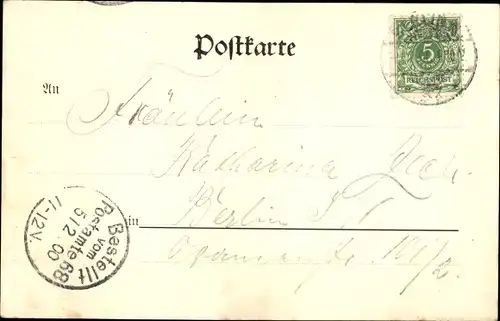 Postkarte
5
REICHSPOST
An
Fräulein
Katharina
Berlin
in
Bestellt
vom
Postamte 68
5/2.00
11-12V.